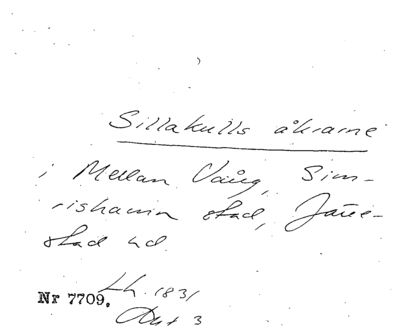 Sillakulls åkrarne
i Mellan Vång, Sim-
rishamn stad, Järre-
stad hd.
Lh. 1831
Nr 7709. Akt 3